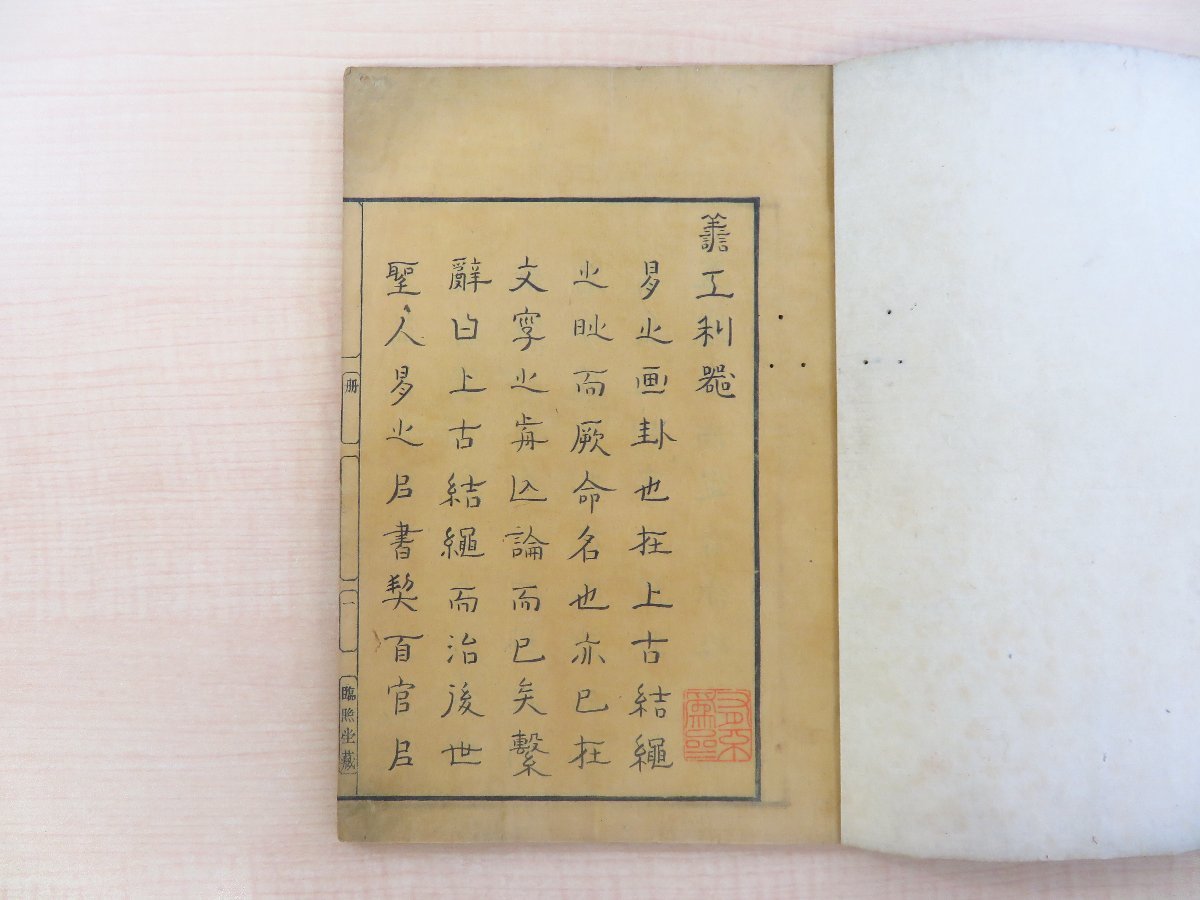 譱工利器
易之画卦也在上古結繩
之時而厥命名也亦已在
文字之歬亾論而已矣繫
辭曰上古結繩而治後世
聖人易之㠯書契百官㠯
冊
一
臨照坐藏